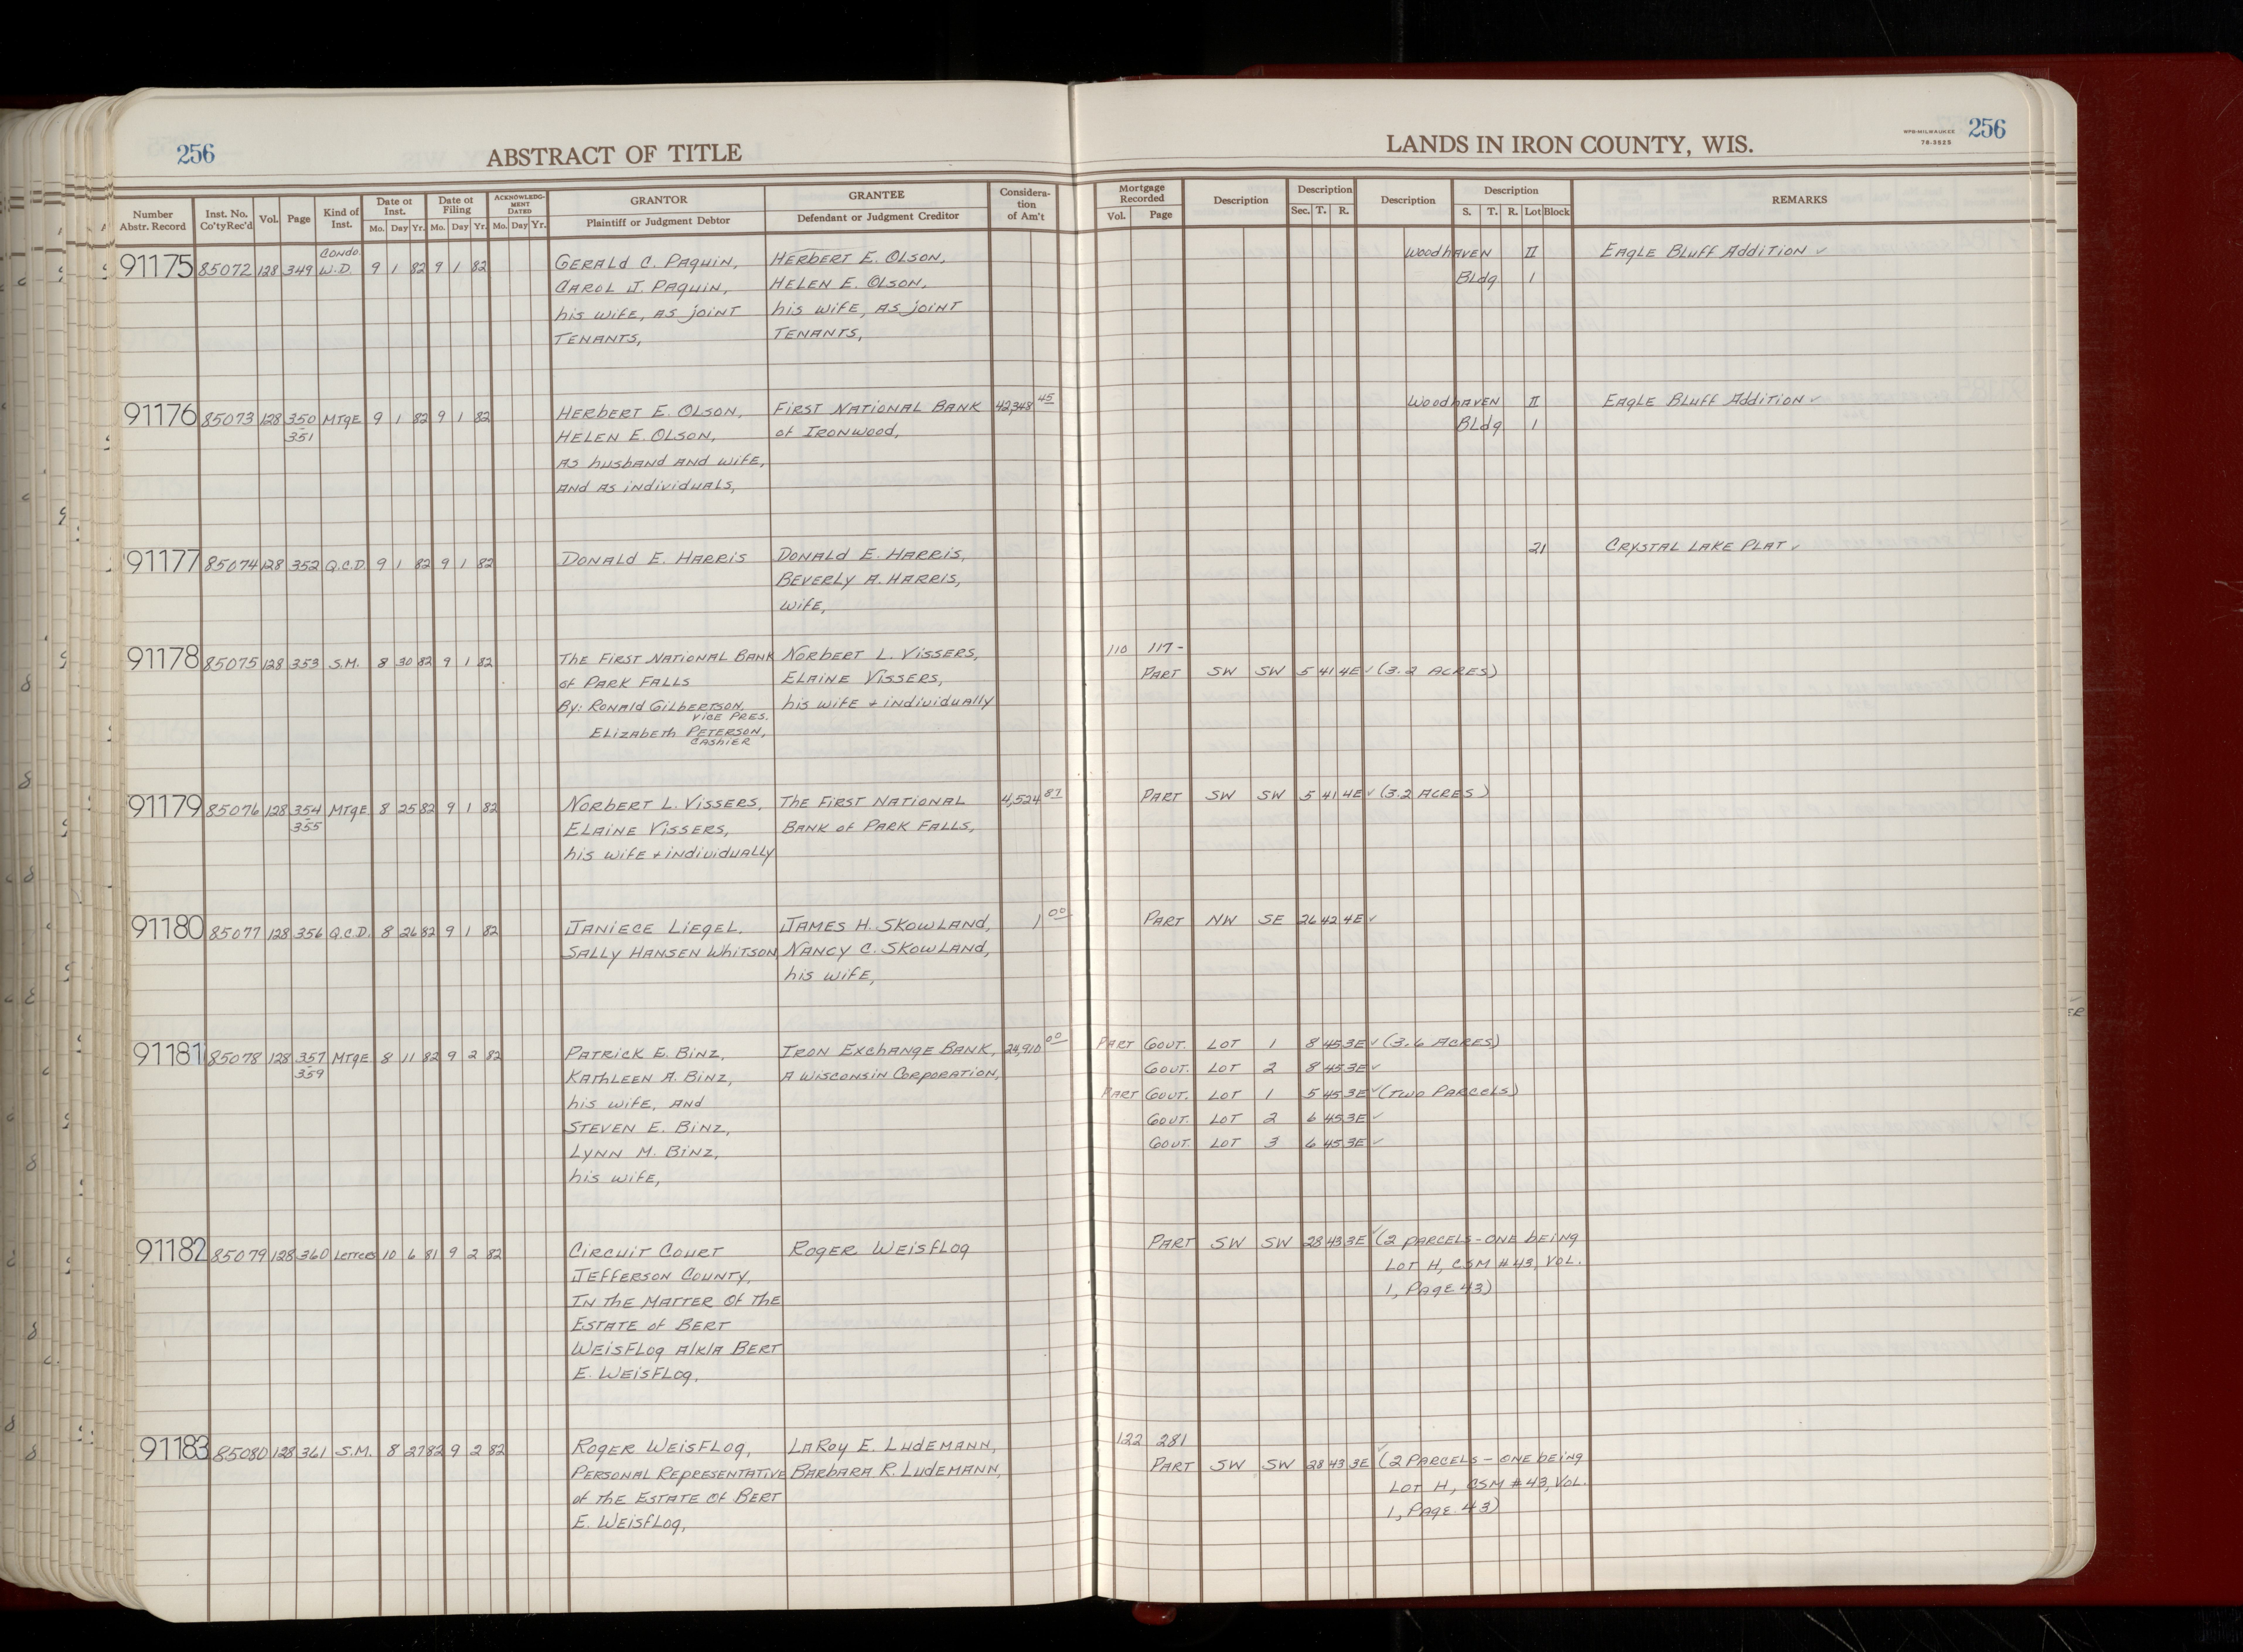 256 ABSTRACT OF TITLE LANDS IN IRON COUNTY, WIS. WPB-MILWAUKEE 78-3525 256
Number Abstr. Record Inst. No. Co'ty Rec'd Vol. Page Kind of Inst. Date of Inst. Mo. Day Yr. Date of Filing Mo. Day Yr. ACKNOWLEDGMENT DATED Mo. Day Yr. GRANTOR Plaintiff or Judgment Debtor GRANTEE Defendant or Judgment Creditor Consideration of Am't Mortgage Recorded Vol. Page Description Description Sec. T. R. Description Description S. T. R. Lot Block REMARKS
Condo.
91175 85072 128 349 W.D. 9 1 82 9 1 82 GERALD C. PAQUIN, HERBERT E. OLSON, Woodhaven II Eagle Bluff Addition ✓
CAROL J. PAQUIN, HELEN E. OLSON, Bldg 1
his wife, as joint his wife, as joint
TENANTS, TENANTS,
91176 85073 128 350 MTGE 9 1 82 9 1 82 HERBERT E. OLSON, FIRST NATIONAL BANK 42,348 45 Woodhaven II Eagle Bluff Addition ✓
- 351 HELEN E. OLSON, of IRONWOOD, Bldg 1
AS husband and wife,
and as individuals,
91177 85074 128 352 Q.C.D. 9 1 82 9 1 82 DONALD E. HARRIS DONALD E. HARRIS, 21 CRYSTAL LAKE PLAT ✓
BEVERLY A. HARRIS,
wife,
91178 85075 128 353 S.M. 8 30 82 9 1 82 THE FIRST NATIONAL BANK NORBERT L. VISSERS, 110 117-
of PARK FALLS ELAINE VISSERS, PART SW SW 5 41 4E ✓ (3.2 ACRES)
By: RONALD GILBERTSON, his wife + individually
VICE PRES.
ELIZABETH PETERSON,
CASHIER
91179 85076 128 354 MTGE 8 25 82 9 1 82 NORBERT L. VISSERS, THE FIRST NATIONAL 4,524 87 PART SW SW 5 41 4E ✓ (3.2 ACRES)
- 355 ELAINE VISSERS, BANK of PARK FALLS,
his wife + individually
91180 85077 128 356 Q.C.D. 8 26 82 9 1 82 JANIECE LIEGEL. JAMES H. SKOWLAND, 1 00 PART NW SE 26 42 4E ✓
SALLY HANSEN WHITSON NANCY C. SKOWLAND,
his wife,
91181 85078 128 357 MTGE 8 11 82 9 2 82 PATRICK E. BINZ, IRON EXCHANGE BANK, 24,910 00 PART GOVT. LOT 1 8 45 3E ✓ (3.6 ACRES)
- 359 KATHLEEN A. BINZ, A WISCONSIN CORPORATION, GOVT. LOT 2 8 45 3E ✓
his wife, AND PART GOVT. LOT 1 5 45 3E ✓ (TWO PARCELS)
STEVEN E. BINZ, GOVT. LOT 2 6 45 3E ✓
LYNN M. BINZ, GOVT. LOT 3 6 45 3E ✓
his wife,
91182 85079 128 360 LETTERS 10 6 81 9 2 82 CIRCUIT COURT ROGER WEISFLOG PART SW SW 28 43 3E ✓ (2 PARCELS-ONE being
JEFFERSON COUNTY, LOT H, CSM #43, VOL.
IN THE MATTER OF THE 1, PAGE 43)
ESTATE of BERT
WEISFLOG A/K/A BERT
E. WEISFLOG,
91183 85080 128 361 S.M. 8 27 82 9 2 82 ROGER WEISFLOG, LAROY E. LUDEMANN, 122 281
PERSONAL REPRESENTATIVE BARBARA R. LUDEMANN, PART SW SW 28 43 3E ✓ (2 PARCELS - ONE being
of the ESTATE OF BERT LOT H, CSM #43, VOL.
E. WEISFLOG, 1, PAGE 43)